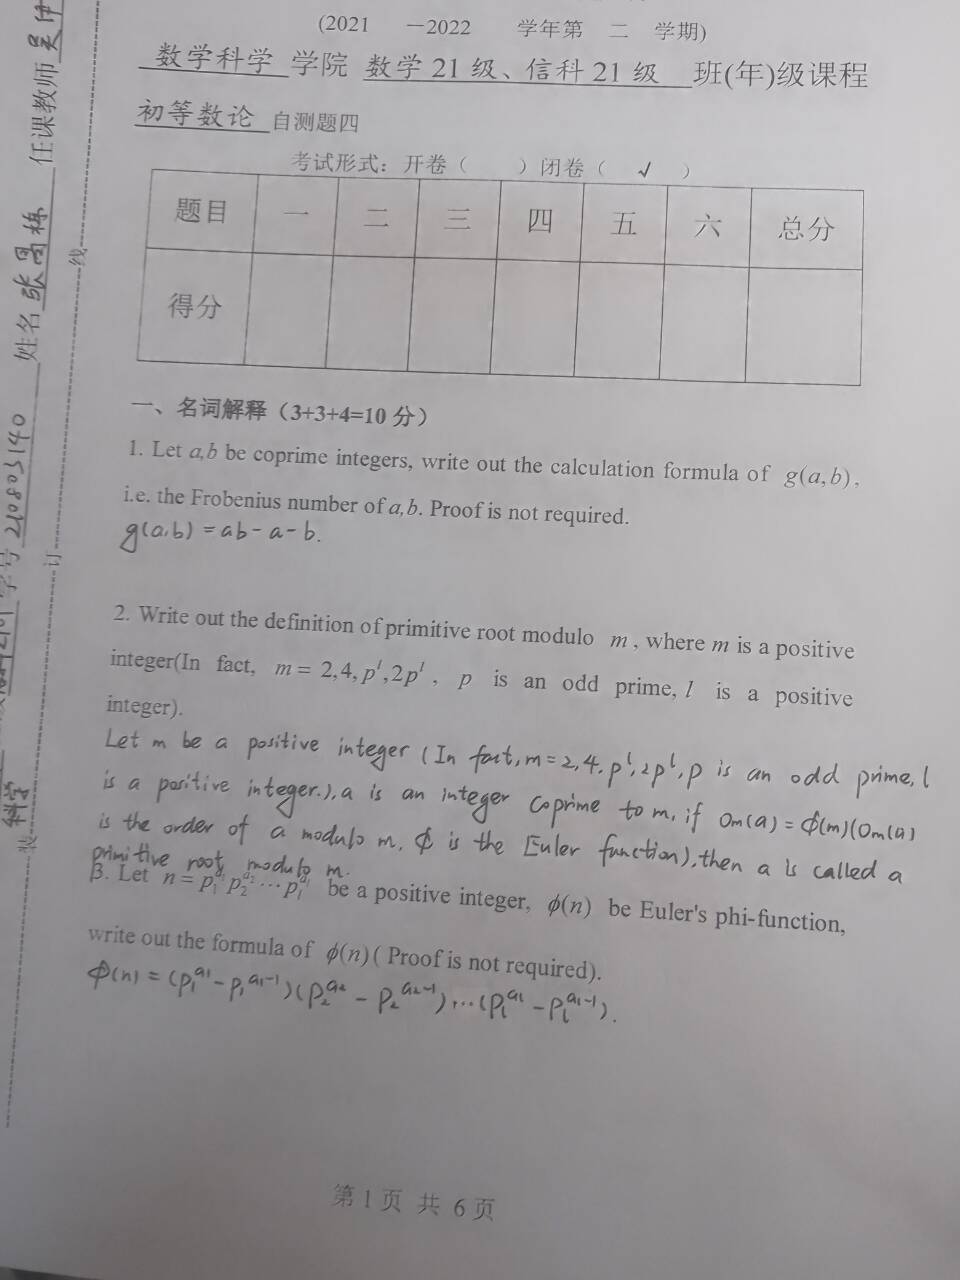 (2021 —2022 学年第 二 学期)
数学科学 学院 数学21级、信科21级 班(年)级课程
初等数论 自测题四
考试形式：开卷（ ）闭卷（ √ ）
题目 一 二 三 四 五 六 总分
得分
一、名词解释（3+3+4=10 分）
1. Let a,b be coprime integers, write out the calculation formula of g(a,b),
i.e. the Frobenius number of a,b. Proof is not required.
g(a,b) = ab-a-b.
2. Write out the definition of primitive root modulo m, where m is a positive
integer(In fact, m = 2,4,p^l,2p^l, p is an odd prime, l is a positive
integer).
Let m be a positive integer (In fact, m=2,4,p^l,2p^l, p is an odd prime, l
is a positive integer.), a is an integer coprime to m, if Om(a)=φ(m)(Om(a)
is the order of a modulo m, φ is the Euler function), then a is called a
primitive root modulo m.
3. Let n = p_1^{a_1} p_2^{a_2} ··· p_l^{a_l} be a positive integer, ϕ(n) be Euler's phi-function,
write out the formula of ϕ(n)( Proof is not required).
φ(n) = (p_1^{a_1} - p_1^{a_1-1})(p_2^{a_2} - p_2^{a_2-1})...(p_l^{a_l} - p_l^{a_l-1}).
第 1 页 共 6 页
任课教师
姓名
学号 210803140
线
订
装